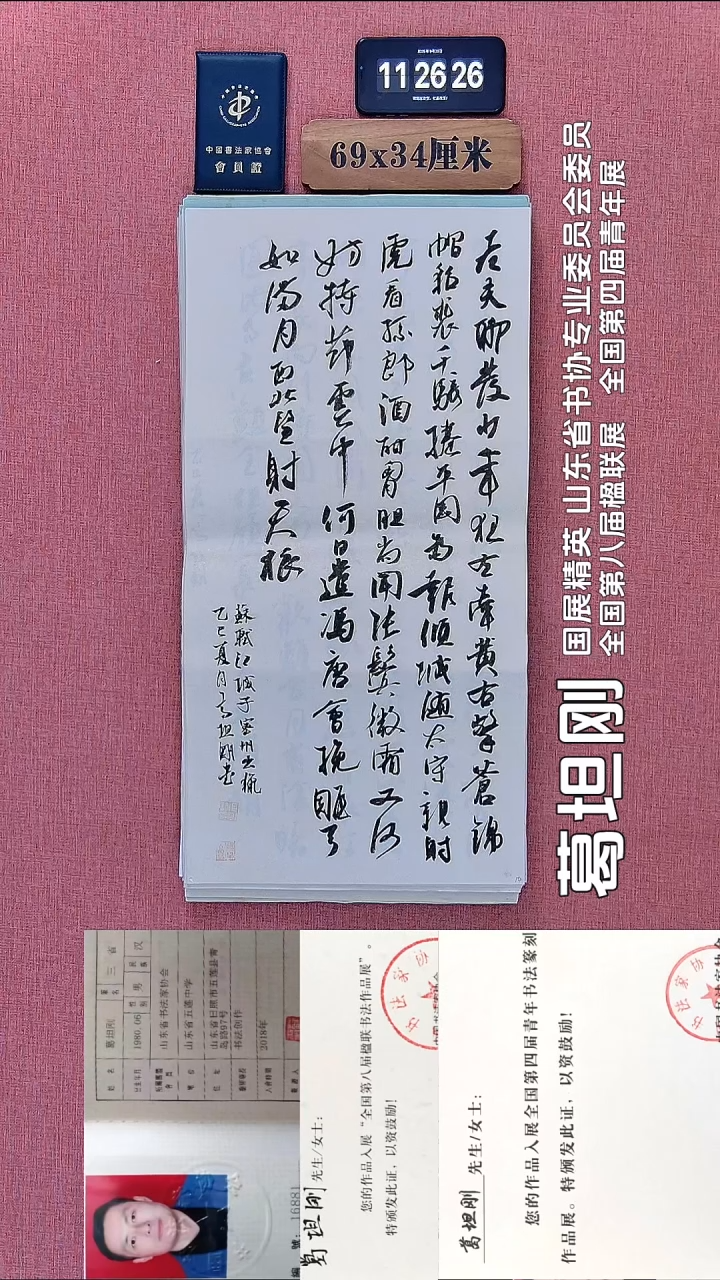 中國書法家協會
會員證
11 26 26
69x34厘米
老夫聊發少年狂左牽黃右擎蒼錦
帽貂裘千騎捲平岡為報傾城隨太守親射
虎看孫郎酒酣胷胆尚開張鬢微霜又何
妨持節雲中何日遣馮唐會挽雕弓
如滿月西北望射天狼
蘇軾江城子密州出獵
乙巳夏月葛坦剛書
国展精英 山东省书协专业委员会委员
全国第八届楹联展 全国第四届青年展
葛坦刚
姓名 葛坦刚
1980.06 性别 男 民族 汉
山东省书法家协会
山东省五莲中学
山东省日照市五莲县青
岛路97号
书法创作
2018年
編 號: 16881
葛坦刚 先生/女士:
您的作品入展“全国第八届楹联书法作品展”。
特颁发此证，以资鼓励!
葛坦刚 先生/女士:
您的作品入展全国第四届青年书法篆刻
作品展。特颁发此证，以资鼓励!